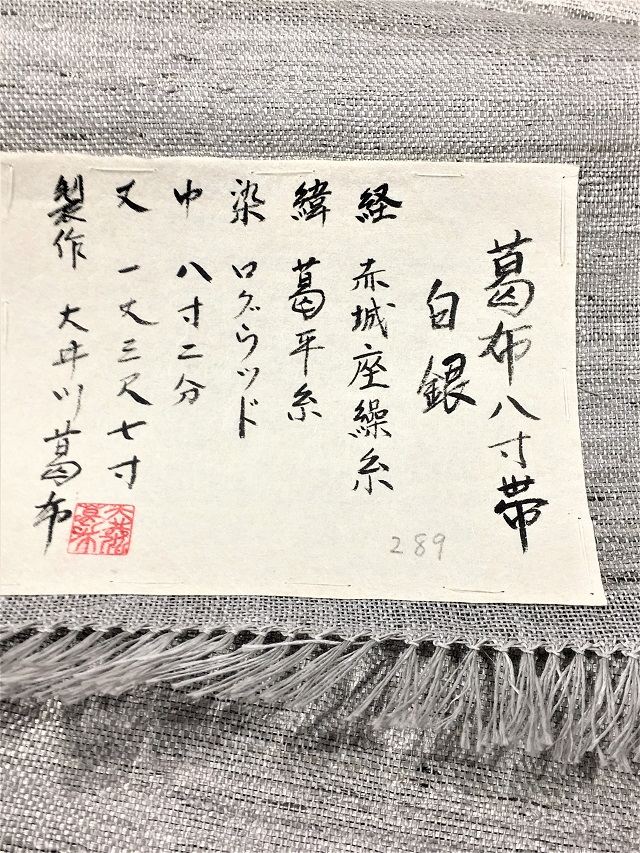 葛布八寸帯
白銀
経 赤城座繰糸
緯 葛平糸
染 ログウッド
巾 八寸二分
丈 一丈三尺七寸
製作 大井川葛布
289